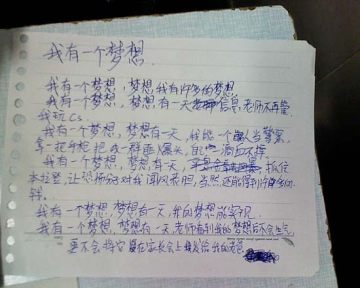 我有一个梦想
我有一个梦想，梦想我有许多的梦想
我有一个梦想，梦想有一天 信息，老师不再管
我玩Cs。
我有一个梦想，梦想有一天，我能一个人当警察，
拿一把手枪把 一群匪 爆头，且 一滴血不掉
我有一个梦想，梦想有一天， 抓住
本拉登，让恐怖分 对我闻风丧胆，当然还能得到许多
我有一个梦想，梦想有一天，我的梦想能实现
我有一个梦想，梦想有一天，老师看到我的梦想后不会生气
更不会将它 在家长会上 给我的老爸